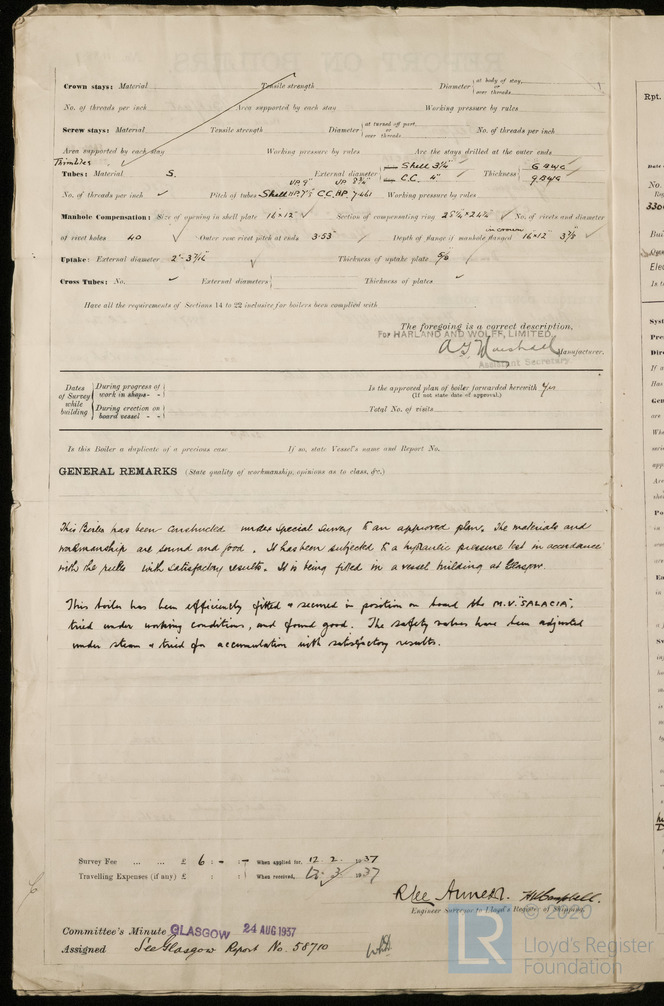 Crown stays: Material Tensile strength Diameter { at body of stay, or over threads
No. of threads per inch Area supported by each stay Working pressure by rules
Screw stays: Material Tensile strength Diameter { at turned off part, or over threads No. of threads per inch
Area supported by each stay Working pressure by rules Are the stays drilled at the outer ends
Thimbles
Tubes: Material S. External diameter { Shell 3¼" C.C. 4" Thickness { 6 BWG 9 BWG
No. of threads per inch Pitch of tubes Shell C.C. Working pressure by rules
Manhole Compensation: Size of opening in shell plate 16"×12" Section of compensating ring No. of rivets and diameter
of rivet holes 40 Outer row rivet pitch at ends 3.53" Depth of flange if manhole flanged in crown 16"×12" 3⅞"
Uptake: External diameter Thickness of uptake plate 5/8
Cross Tubes: No. External diameters { Thickness of plates
Have all the requirements of Sections 14 to 22 inclusive for boilers been complied with
The foregoing is a correct description,
For HARLAND AND WOLFF, LIMITED.
Manufacturer.
Assistant Secretary.
Dates of Survey while building { During progress of work in shops - - { During erection on board vessel - - {
Is the approved plan of boiler forwarded herewith Yes
(If not state date of approval.)
Total No. of visits
Is this Boiler a duplicate of a previous case If so, state Vessel's name and Report No.
GENERAL REMARKS (State quality of workmanship, opinions as to class, &c.)
This Boiler has been constructed under special survey to an approved plan. The materials and
workmanship are sound and good. It has been subjected to a hydraulic pressure test in accordance
with the rules with satisfactory results. It is being fitted in a vessel building at Glasgow.
This boiler has been efficiently fitted & secured in position on board the M.V. "SALACIA",
tried under working conditions, and found good. The safety valves have been adjusted
under steam & tried for accumulation with satisfactory results.
Survey Fee ... ... £ 6 : - : - When applied for, 12.2.1937
Travelling Expenses (if any) £ : : When received, 1937
Engineer Surveyor to Lloyd's Register of Shipping.
Committee's Minute GLASGOW 24 AUG 1937
Assigned See Glasgow Report No. 58710
© 2020
LR
Lloyd's Register
Foundation
Rpt.
No.